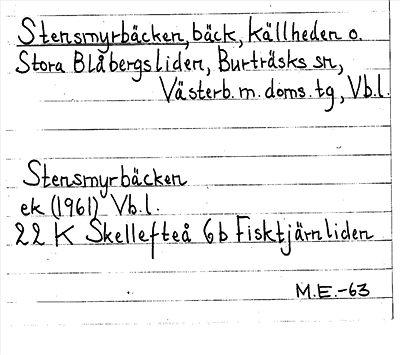 Stensmyrbäcken, bäck, Källheden o.
Stora Blåbergsliden, Burträsks sn,
Västerb. m. doms. tg, Vb.l.
Stensmyrbäcken
ek (1961) Vb.l.
22 K Skellefteå 6b Fisktjärnliden
M.E.-63